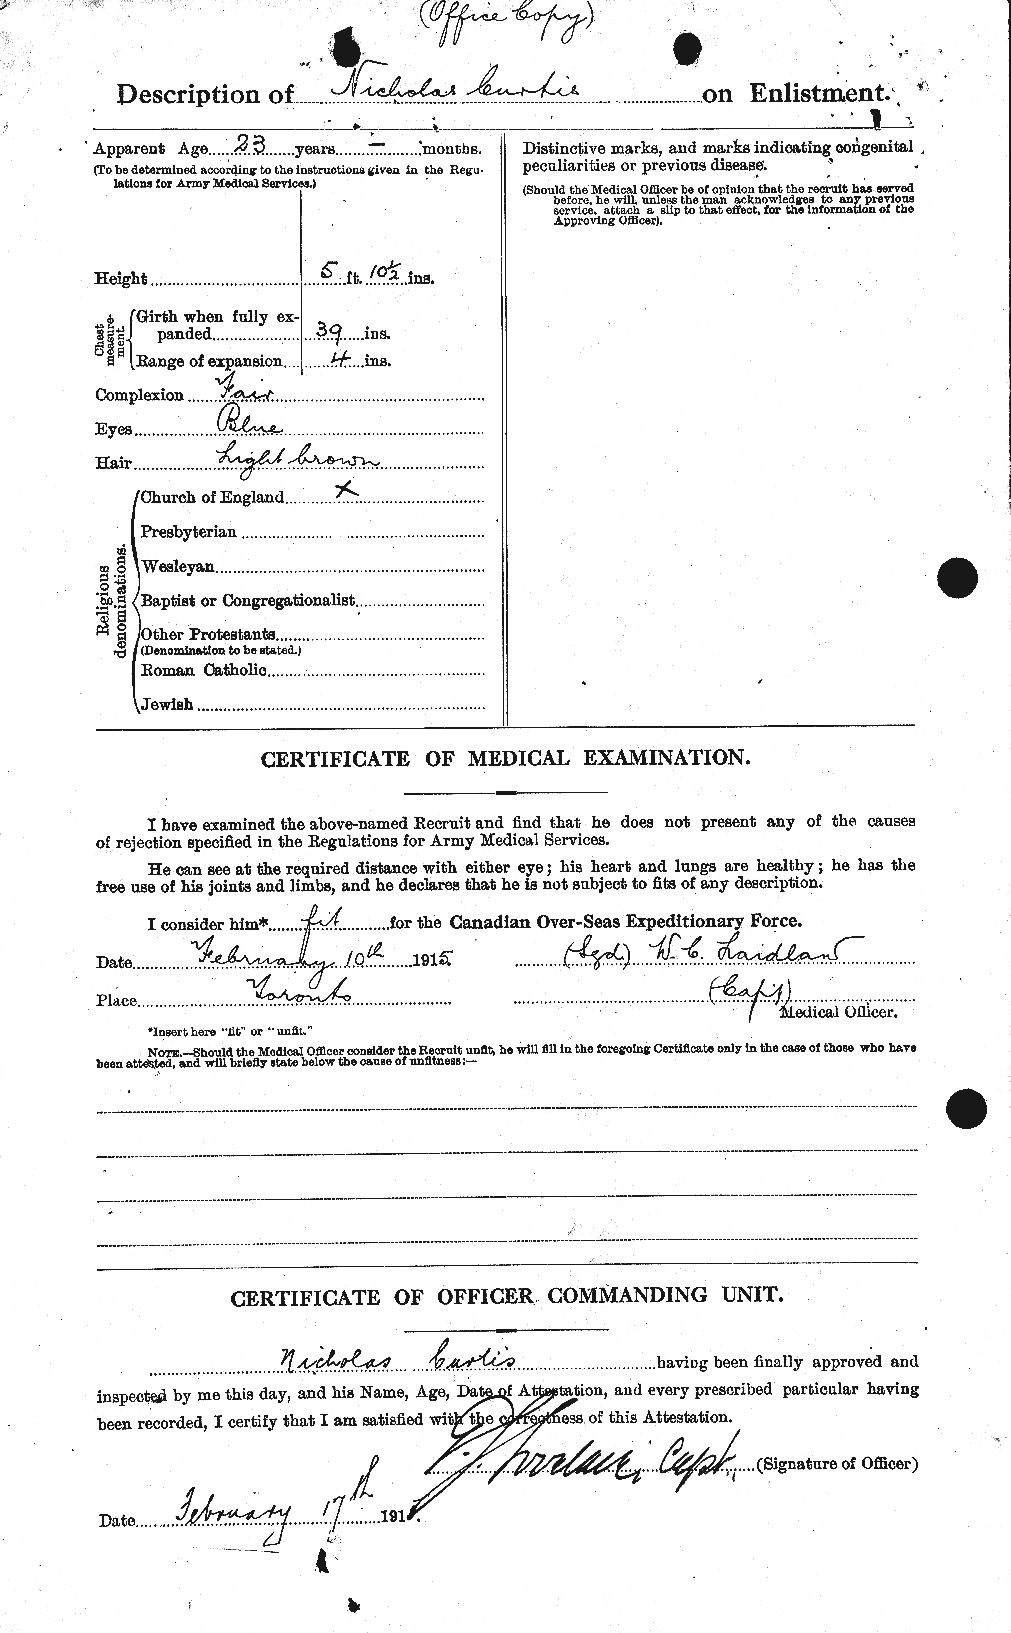 (Office Copy)
Description of Nicholas Curtis on Enlistment.
Apparent Age 23 years – months.
(To be determined according to the instructions given in the Regu-
lations for Army Medical Services.)
Height 5 ft. 10½ ins.
Chest measure-ment.
Girth when fully ex-
panded 39 ins.
Range of expansion 4 ins.
Complexion Fair
Eyes Blue
Hair Light brown
Religious denominations.
Church of England X
Presbyterian
Wesleyan
Baptist or Congregationalist
Other Protestants
(Denomination to be stated.)
Roman Catholic
Jewish
Distinctive marks, and marks indicating congenital
peculiarities or previous disease.
(Should the Medical Officer be of opinion that the recruit has served
before, he will, unless the man acknowledges to any previous
service, attach a slip to that effect, for the information of the
Approving Officer).
CERTIFICATE OF MEDICAL EXAMINATION.
I have examined the above-named Recruit and find that he does not present any of the causes
of rejection specified in the Regulations for Army Medical Services.
He can see at the required distance with either eye; his heart and lungs are healthy; he has the
free use of his joints and limbs, and he declares that he is not subject to fits of any description.
I consider him* fit for the Canadian Over-Seas Expeditionary Force.
Date February 10th 1915 (Sgd) W. C. Laidlaw
Place Toronto (Capt)
Medical Officer.
*Insert here "fit" or "unfit."
NOTE.—Should the Medical Officer consider the Recruit unfit, he will fill in the foregoing Certificate only in the case of those who have
been attested, and will briefly state below the cause of unfitness:—
CERTIFICATE OF OFFICER COMMANDING UNIT.
Nicholas Curtis having been finally approved and
inspected by me this day, and his Name, Age, Date of Attestation, and every prescribed particular having
been recorded, I certify that I am satisfied with the correctness of this Attestation.
Capt. (Signature of Officer)
Date February 17th 1915.